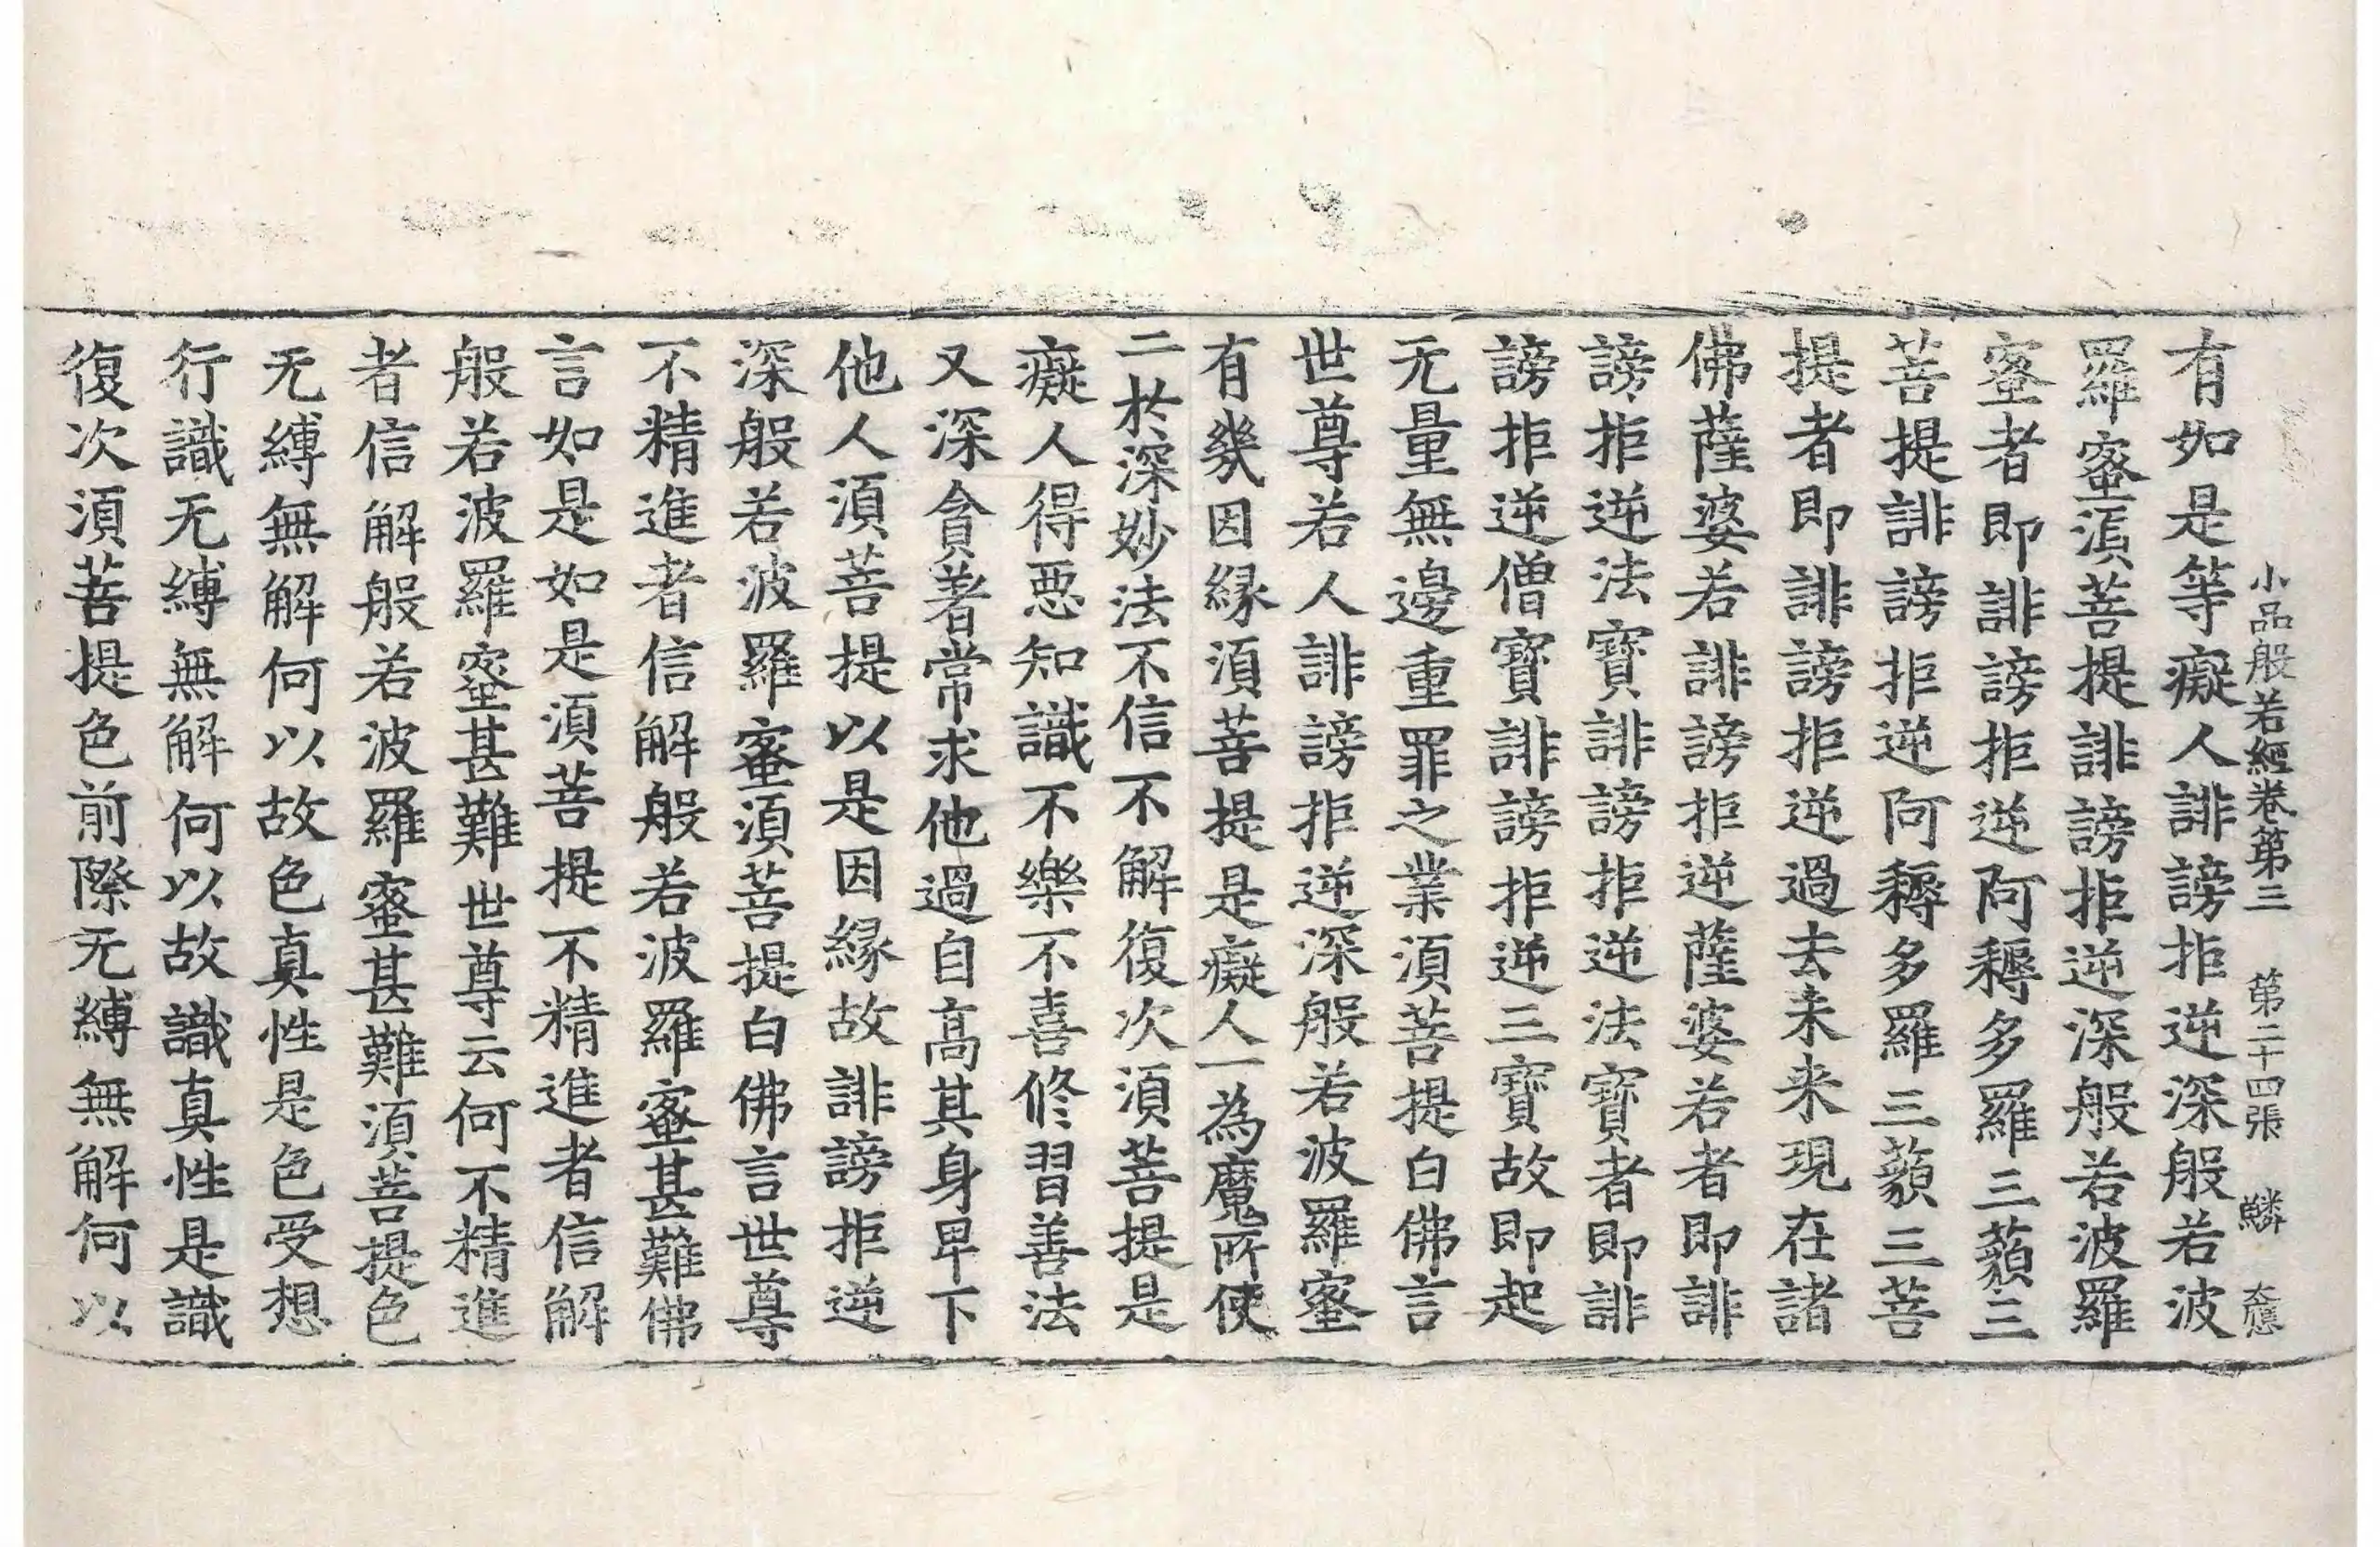 小品般若經卷第三 第二十四張 鱗
有如是等癡人誹謗拒逆深般若波
羅蜜湏菩提誹謗拒逆深般若波羅
蜜者即誹謗拒逆阿耨多羅三藐三
菩提誹謗拒逆阿耨多羅三藐三菩
提者即誹謗拒逆過去未来現在諸
佛薩婆若誹謗拒逆薩婆若者即誹
謗拒逆法寶誹謗拒逆法寶者即誹
謗拒逆僧寶誹謗拒逆三寶故即起
无量無邊重罪之業湏菩提白佛言
世尊若人誹謗拒逆深般若波羅蜜
有幾因縁湏菩提是癡人一為魔所使
二於深妙法不信不解復次湏菩提是
癡人得惡知識不樂不喜修習善法
又深貪著常求他過自高其身卑下
他人湏菩提以是因縁故誹謗拒逆
深般若波羅蜜湏菩提白佛言世尊
不精進者信解般若波羅蜜甚難佛
言如是如是湏菩提不精進者信解
般若波羅蜜甚難世尊云何不精進
者信解般若波羅蜜甚難湏菩提色
无縛無解何以故色真性是色受想
行識无縛無解何以故識真性是識
復次湏菩提色前際无縛無解何以